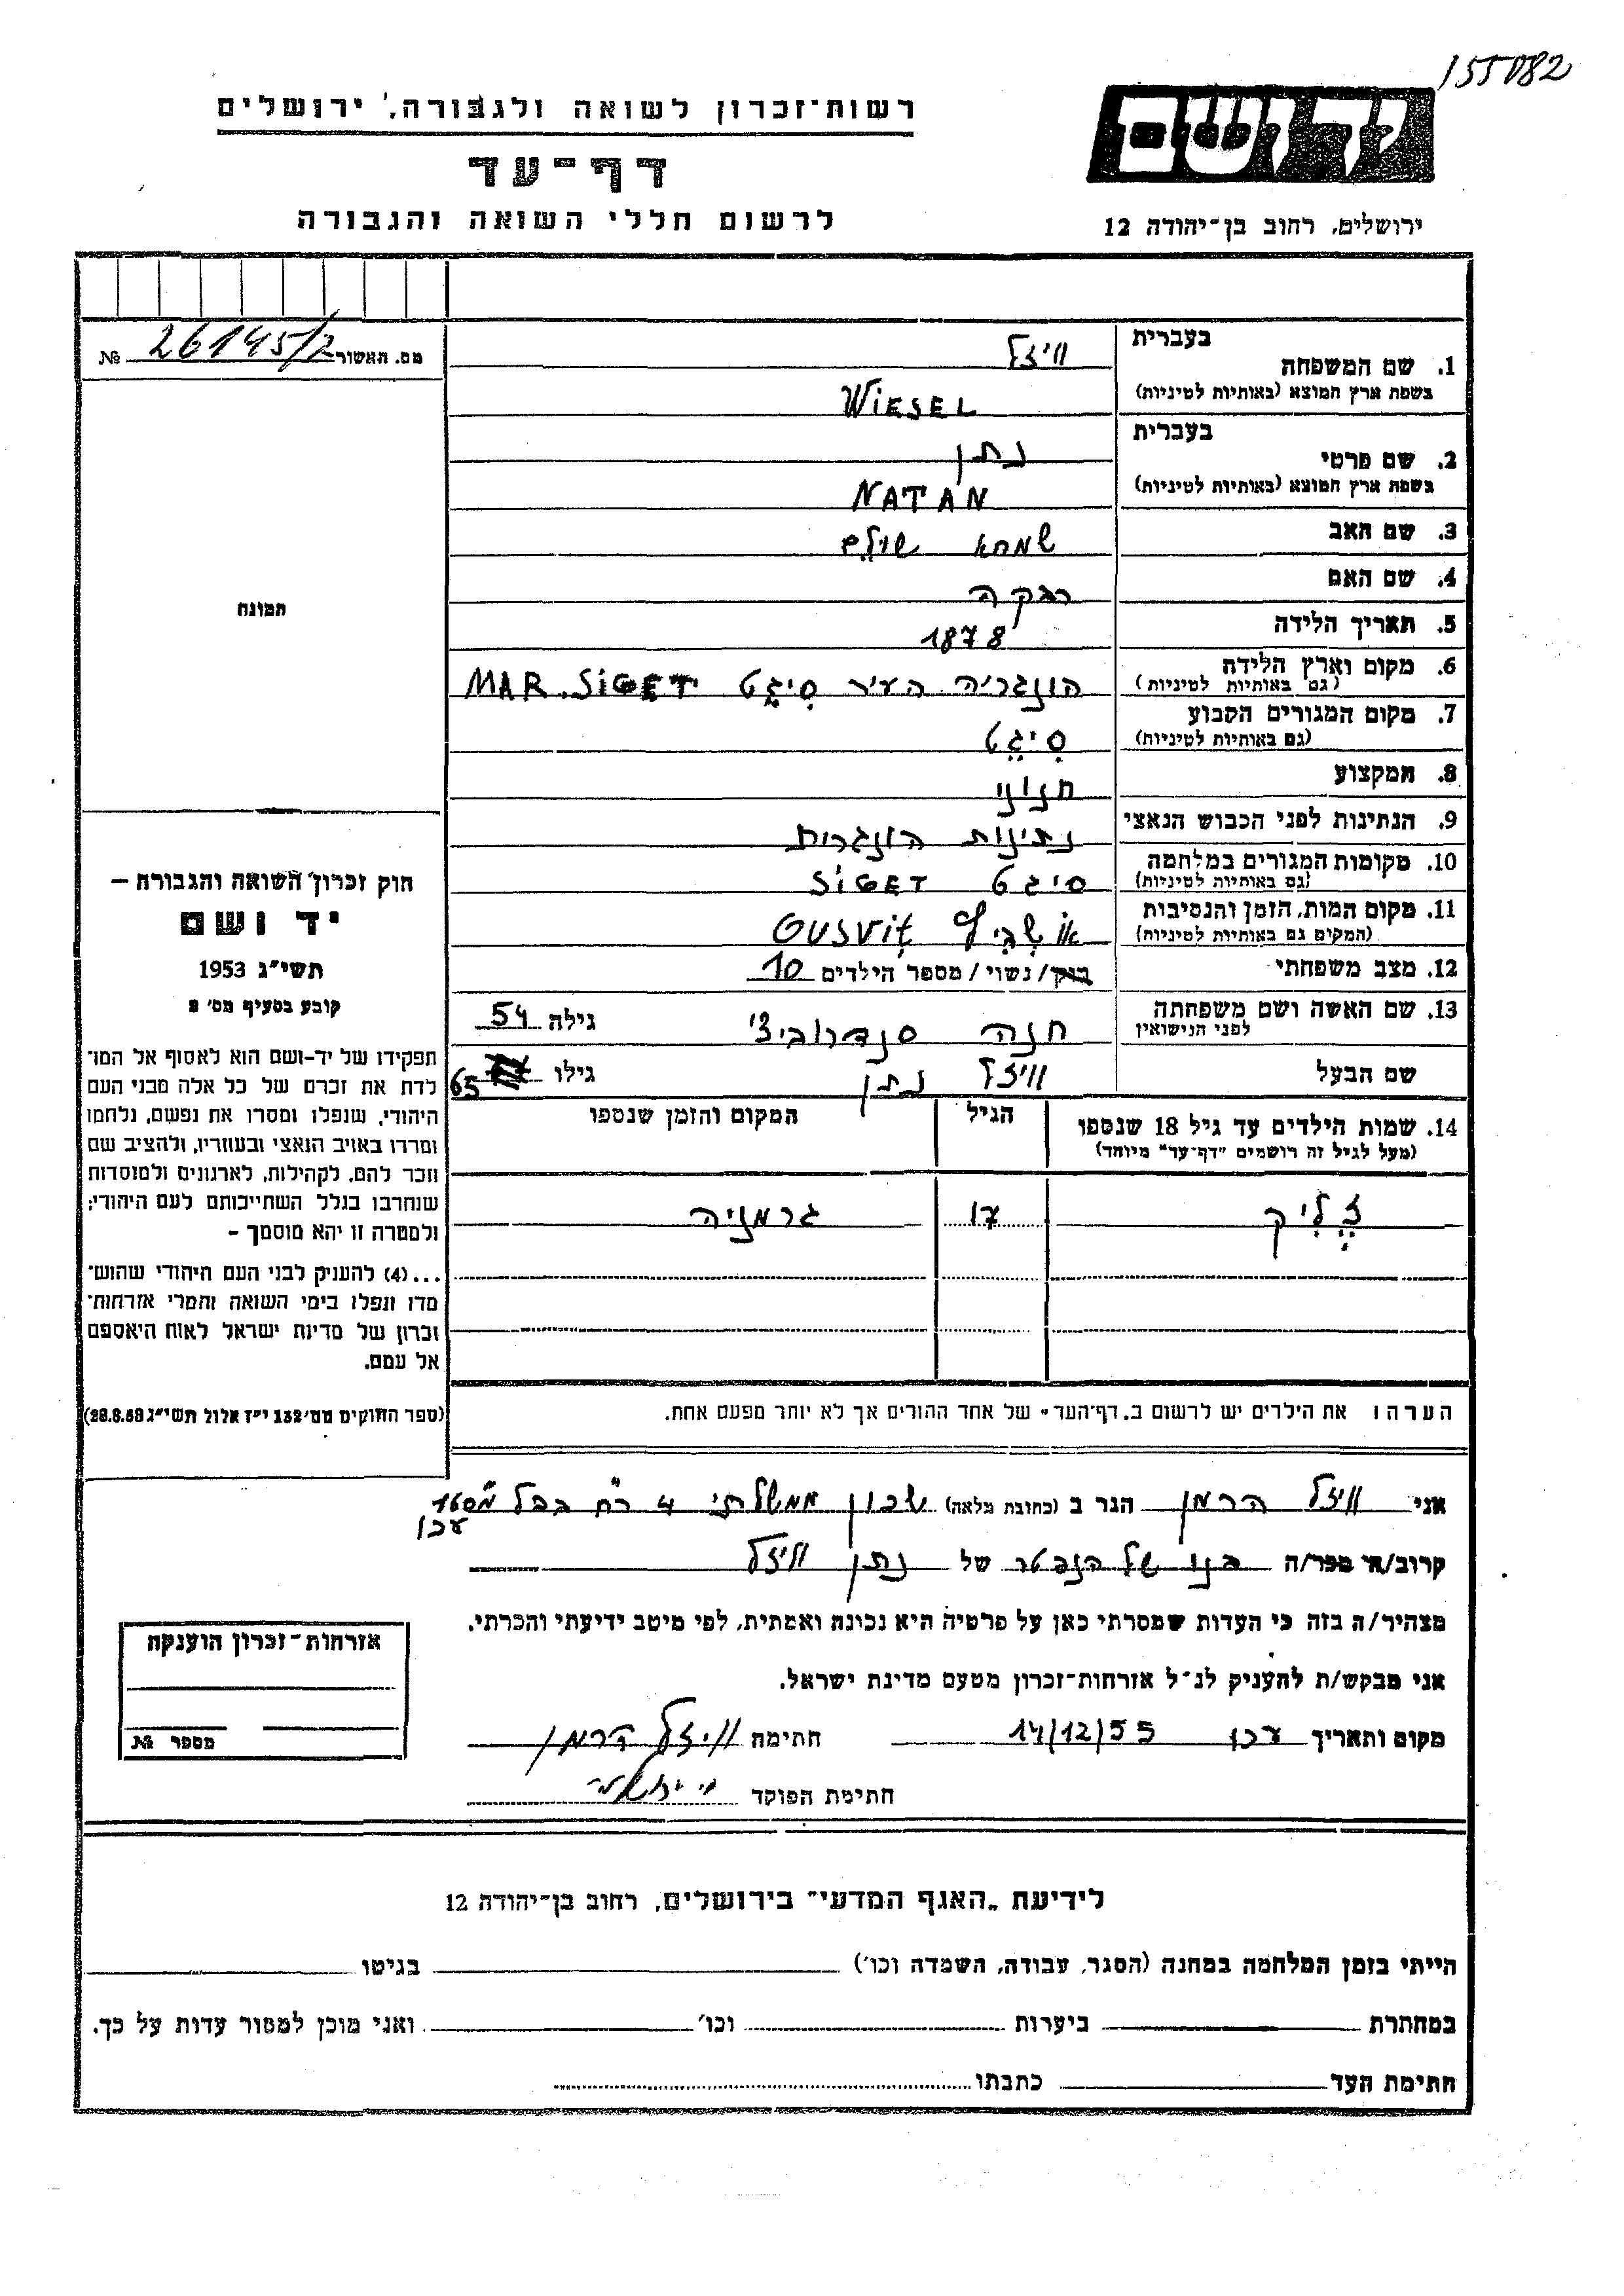 155082
יד ושם
ירושלים, רחוב בן־יהודה 12
רשות־זכרון לשואה ולגבורה, ירושלים
דף־עד
לרשום חללי השואה והגבורה
מס. האשור 26145/2 №
בעברית
1. שם המשפחה וויזל
בשפת ארץ המוצא (באותיות לטיניות) WIESEL
בעברית
2. שם פרטי נתן
בשפת ארץ המוצא (באותיות לטיניות) NATAN
3. שם האב שמחא שולם
4. שם האם רבקה
5. תאריך הלידה 1878
6. מקום וארץ הלידה הונגריה העיר סיגט MAR. SIGET
(גם באותיות לטיניות)
7. מקום המגורים הקבוע סיגט
(גם באותיות לטיניות)
8. המקצוע חנוני
9. הנתינות לפני הכבוש הנאצי נתינות הונגרית
10. מקומות המגורים במלחמה סיגט SIGET
(גם באותיות לטיניות)
11. מקום המות, הזמן והנסיבות אושביץ OUSVIT
(המקום גם באותיות לטיניות)
12. מצב משפחתי רוק/נשוי/מספר הילדים 10
13. שם האשה ושם משפחתה חנה סנדרוביצי גילה 54
לפני הנישואין
שם הבעל וויזל נתן גילו 65
14. שמות הילדים עד גיל 18 שנספו הגיל המקום והזמן שנספו
(מעל לגיל זה רושמים "דף־עד" מיוחד)
זליק 17 גרמניה
הערה: את הילדים יש לרשום ב"דף־העד" של אחד ההורים אך לא יותר מפעם אחת.
תמונה
חוק זכרון השואה והגבורה –
יד ושם
תשי"ג 1953
קובע בסעיף מס' 2
תפקידו של יד-ושם הוא לאסוף אל המו־
לדת את זכרם של כל אלה מבני העם
היהודי, שנפלו ומסרו את נפשם, נלחמו
ומרדו באויב הנאצי ובעוזריו, ולהציב שם
וזכר להם, לקהילות, לארגונים ולמוסדות
שנחרבו בגלל השתייכותם לעם היהודי;
ולמטרה זו יהא מוסמך –
...(4) להעניק לבני העם היהודי שהוש־
מדו ונפלו בימי השואה והמרי אזרחות־
זכרון של מדינת ישראל לאות היאספם
אל עמם.
(ספר החוקים מס' 132 י"ז אלול תשי"ג 28.8.53)
אני וויזל הרמן הגר ב (כתובת מלאה) שכון ממשלתי 4
עכו
קרוב/ת מפר/ה בנו של הנפטר של נתן וויזל
מצהיר/ה בזה כי העדות שמסרתי כאן על פרטיה היא נכונה ואמתית, לפי מיטב ידיעתי והכרתי.
אני מבקש/ת להעניק לנ"ל אזרחות־זכרון מטעם מדינת ישראל.
מקום ותאריך עכו 14/12/55 חתימה וויזל הרמן
חתימת הפוקד
אזרחות־זכרון הוענקה
מספר №
לידיעת "האגף המדעי" בירושלים, רחוב בן־יהודה 12
הייתי בזמן המלחמה במחנה (הסגר, עבודה, השמדה וכו') בגיטו
במחתרת ביערות וכו' ואני מוכן למסור עדות על כך.
חתימת העד כתבתו